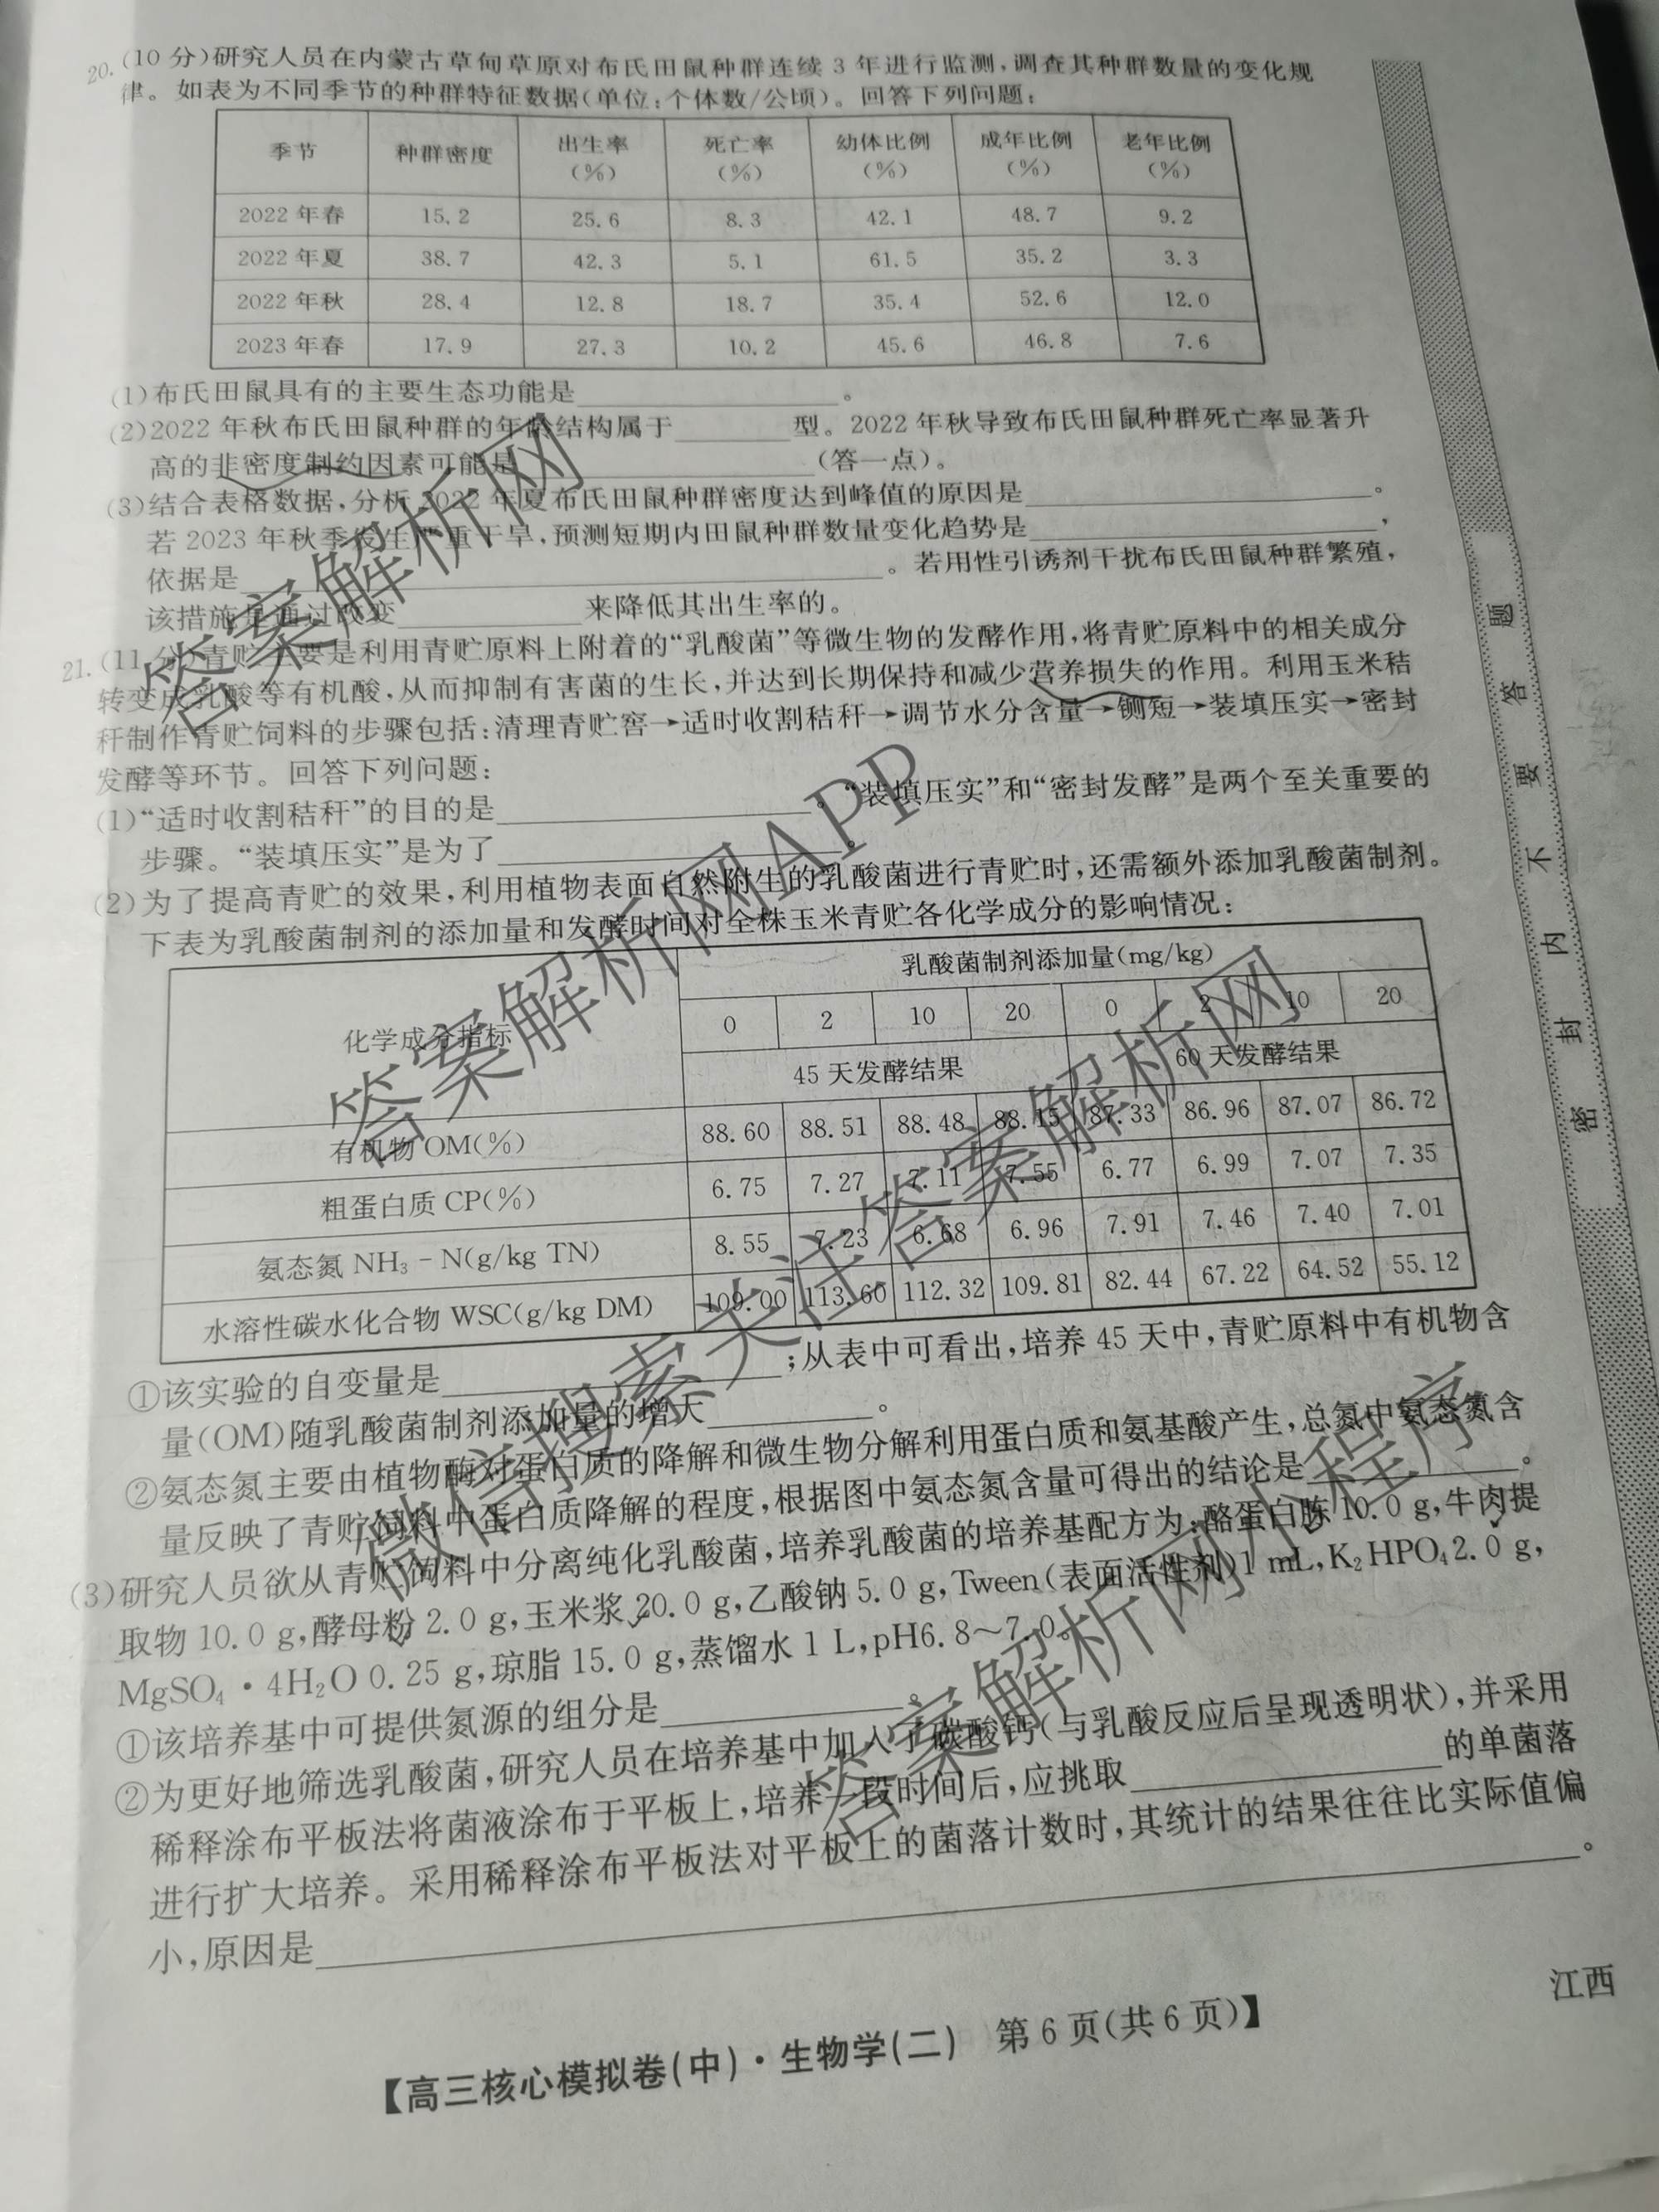 20.(10 分)研究人员在内蒙古草甸草原对布氏田鼠种群连续 3 年进行监测,调查其种群数量的变化规
律。如表为不同季节的种群特征数据(单位:个体数/公顷)。回答下列问题:
季节 种群密度 出生率(%) 死亡率(%) 幼体比例(%) 成年比例(%) 老年比例(%)
2022 年春 15.2 25.6 8.3 42.1 48.7 9.2
2022 年夏 38.7 42.3 5.1 61.5 35.2 3.3
2022 年秋 28.4 12.8 18.7 35.4 52.6 12.0
2023 年春 17.9 27.3 10.2 45.6 46.8 7.6
(1)布氏田鼠具有的主要生态功能是____________。
(2)2022 年秋布氏田鼠种群的年龄结构属于______型。2022 年秋导致布氏田鼠种群死亡率显著升
高的非密度制约因素可能是____________(答一点)。
(3)结合表格数据,分析 2022 年夏布氏田鼠种群密度达到峰值的原因是____________。
若 2023 年秋季发生严重干旱,预测短期内田鼠种群数量变化趋势是____________,
依据是____________。若用性引诱剂干扰布氏田鼠种群繁殖,
该措施是通过改变________来降低其出生率的。
21.(11 分)青贮主要是利用青贮原料上附着的“乳酸菌”等微生物的发酵作用,将青贮原料中的相关成分
转变成乳酸等有机酸,从而抑制有害菌的生长,并达到长期保持和减少营养损失的作用。利用玉米秸
秆制作青贮饲料的步骤包括:清理青贮窖→适时收割秸秆→调节水分含量→铡短→装填压实→密封
发酵等环节。回答下列问题:
(1)“适时收割秸秆”的目的是____________。“装填压实”和“密封发酵”是两个至关重要的
步骤。“装填压实”是为了____________。
(2)为了提高青贮的效果,利用植物表面自然附生的乳酸菌进行青贮时,还需额外添加乳酸菌制剂。
下表为乳酸菌制剂的添加量和发酵时间对全株玉米青贮各化学成分的影响情况:
化学成分指标 乳酸菌制剂添加量(mg/kg)
0 2 10 20 0 2 10 20
45 天发酵结果 60 天发酵结果
有机物 OM(%) 88.60 88.51 88.48 88.15 87.33 86.96 87.07 86.72
粗蛋白质 CP(%) 6.75 7.27 7.11 7.55 6.77 6.99 7.07 7.35
氨态氮 NH₃-N(g/kg TN) 8.55 7.23 6.68 6.96 7.91 7.46 7.40 7.01
水溶性碳水化合物 WSC(g/kg DM) 109.00 113.60 112.32 109.81 82.44 67.22 64.52 55.12
①该实验的自变量是____________;从表中可看出,培养 45 天中,青贮原料中有机物含
量(OM)随乳酸菌制剂添加量的增大________。
②氨态氮主要由植物酶对蛋白质的降解和微生物分解利用蛋白质和氨基酸产生,总氮中氨态氮含
量反映了青贮饲料中蛋白质降解的程度,根据图中氨态氮含量可得出的结论是____________。
(3)研究人员欲从青贮饲料中分离纯化乳酸菌,培养乳酸菌的培养基配方为:酪蛋白胨 10.0 g,牛肉提
取物 10.0 g,酵母粉 2.0 g,玉米浆 20.0 g,乙酸钠 5.0 g,Tween(表面活性剂)1 mL,K₂HPO₄2.0 g,
MgSO₄·4H₂O 0.25 g,琼脂 15.0 g,蒸馏水 1 L,pH6.8~7.0。
①该培养基中可提供氮源的组分是____________。
②为更好地筛选乳酸菌,研究人员在培养基中加入了碳酸钙(与乳酸反应后呈现透明状),并采用
稀释涂布平板法将菌液涂布于平板上,培养一段时间后,应挑取____________的单菌落
进行扩大培养。采用稀释涂布平板法对平板上的菌落计数时,其统计的结果往往比实际值偏
小,原因是____________。
【高三核心模拟卷(中)·生物学(二) 第 6 页(共 6 页)】
江西
密 封 线 内 不 要 答 题
答案解析网
答案解析网APP
微信搜索关注答案解析网
答案解析网小程序